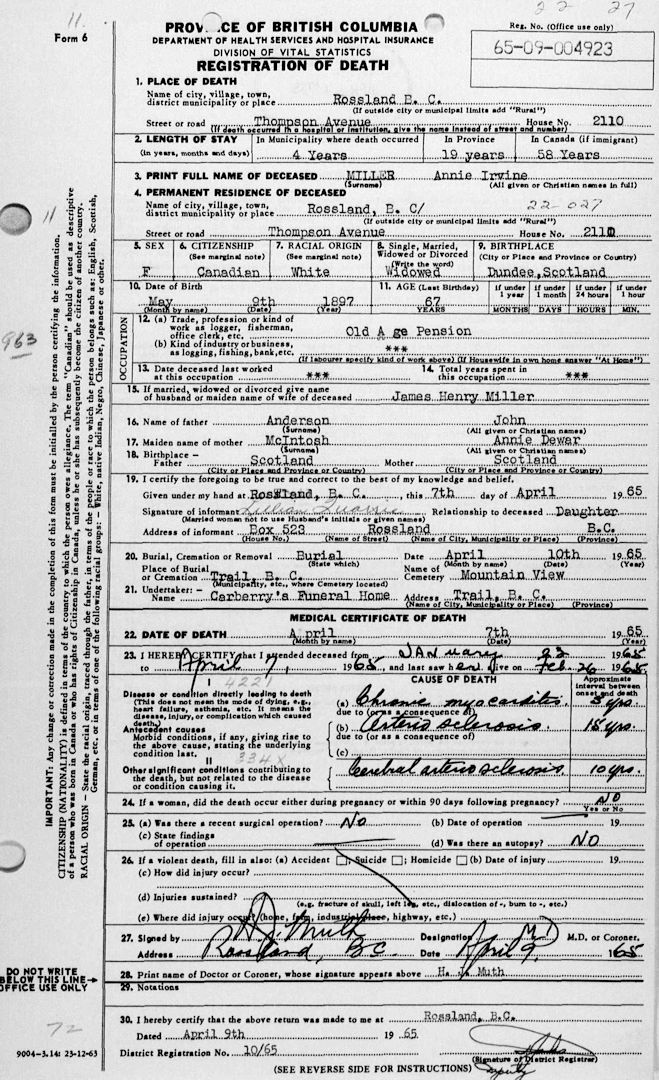 11.
22 27
Form 6
PROV CE OF BRITISH COLUMBIA
DEPARTMENT OF HEALTH SERVICES AND HOSPITAL INSURANCE
DIVISION OF VITAL STATISTICS
REGISTRATION OF DEATH
Reg. No. (Office use only)
65-09-004923
1. PLACE OF DEATH
Name of city, village, town, district municipality or place Rossland B. C.
(If outside city or municipal limits add "Rural")
Street or road Thompson Avenue House No. 2110
(If death occurred in a hospital or institution, give the name instead of street and number)
2. LENGTH OF STAY In Municipality where death occurred In Province In Canada (if immigrant)
(in years, months and days) 4 Years 19 years 58 Years
3. PRINT FULL NAME OF DECEASED MILLER Annie Irvine
(Surname) (All given or Christian names in full)
4. PERMANENT RESIDENCE OF DECEASED
Name of city, village, town, district municipality or place Rossland, B. C/ 22-027
(If outside city or municipal limits add "Rural")
Street or road Thompson Avenue House No. 2110
5. SEX 6. CITIZENSHIP 7. RACIAL ORIGIN 8. Single, Married, Widowed or Divorced 9. BIRTHPLACE
(See marginal note) (See marginal note) (Write the word) (City or Place and Province or Country)
F Canadian White Widowed Dundee, Scotland
10. Date of Birth 11. AGE (Last Birthday) If under 1 year If under 1 month If under 24 hours If under 1 hour
May 9th 1897 67
(Month by name) (Date) (Year) YEARS MONTHS DAYS HOURS MIN.
OCCUPATION
12. (a) Trade, profession or kind of work as logger, fisherman, office clerk, etc. Old A ge Pension
(b) Kind of industry or business, as logging, fishing, bank, etc. ***
(If labourer specify kind of work above) (If Housewife in own home answer "At Home")
13. Date deceased last worked at this occupation *** 14. Total years spent in this occupation ***
15. If married, widowed or divorced give name of husband or maiden name of wife of deceased James Henry Miller
16. Name of father Anderson John
(Surname) (All given or Christian names)
17. Maiden name of mother McIntosh Annie Dewar
(Surname) (All given or Christian names)
18. Birthplace –
Father Scotland Mother Scotland
(City or Place and Province or Country) (City or Place and Province or Country)
19. I certify the foregoing to be true and correct to the best of my knowledge and belief.
Given under my hand at Rossland, B. C. , this 7th day of April 1965
Signature of informant Lillian Relationship to deceased Daughter
(Married woman not to use Husband's initials or given names)
Address of informant Box 523 Rossland B.C.
(House No.) (Name of Street) (Name of City, Municipality or Place) (Province)
20. Burial, Cremation or Removal Burial Date April 10th 1965
(State which) (Month by name) (Date) (Year)
Place of Burial or Cremation Trail, B. C. Name of Cemetery Mountain View
(Municipality, etc., where Cemetery located)
21. Undertaker: – Name Carberry's Funeral Home Address Trail, B. C.
(Name of City, Municipality or Place) (Province)
MEDICAL CERTIFICATE OF DEATH
22. DATE OF DEATH A pril 7th 1965
(Month by name) (Date) (Year)
23. I HEREBY CERTIFY that I attended deceased from January 23 1965
to April 7, 1965, and last saw her alive on Feb. 26 1965
I 4221
CAUSE OF DEATH
Approximate interval between onset and death
Disease or condition directly leading to death
(This does not mean the mode of dying, e.g., heart failure, asthenia, etc. It means the disease, injury, or complication which caused death.)
(a) Chronic myocarditis yrs.
due to (or as a consequence of)
Antecedent causes
Morbid conditions, if any, giving rise to the above cause, stating the underlying condition last.
(b) Arterio sclerosis. yrs.
due to (or as a consequence of)
(c)
II 334X
Other significant conditions contributing to the death, but not related to the disease or condition causing it.
Cerebral arterio sclerosis. 10 yrs.
24. If a woman, did the death occur either during pregnancy or within 90 days following pregnancy? NO
Yes or No
25. (a) Was there a recent surgical operation? NO (b) Date of operation 19
(c) State findings of operation (d) Was there an autopsy? NO
26. If a violent death, fill in also: (a) Accident ; Suicide ; Homicide (b) Date of injury 19
(c) How did injury occur?
(d) Injuries sustained?
(e.g. fracture of skull, left leg, etc., dislocation of -, burn to -, etc.)
(e) Where did injury occur? (home, farm, industrial place, highway, etc.)
27. Signed by H J Muth Designation M.D. M.D. or Coroner.
Address Rossland, B.C. Date April 9, 1965
28. Print name of Doctor or Coroner, whose signature appears above H. J. Muth
29. Notations
30. I hereby certify that the above return was made to me at Rossland, B.C.
Dated April 9th 1965
District Registration No. 10/65
(Signature of District Registrar)
Deputy
(SEE REVERSE SIDE FOR INSTRUCTIONS)
11
963
IMPORTANT: Any change or correction made in the completion of this form must be initialled by the person certifying the information.
CITIZENSHIP (NATIONALITY) is defined in terms of the country to which the person owes allegiance. The term "Canadian" should be used as descriptive
of a person who was born in Canada or who has rights of Citizenship in Canada, unless he or she has subsequently become the citizen of another country.
RACIAL ORIGIN – State the racial origin, traced through the father, in terms of the people or race to which the person belongs such as: English, Scottish,
German, etc., or in terms of one of the following racial groups: – White, native Indian, Negro, Chinese, Japanese or other.
DO NOT WRITE
BELOW THIS LINE
OFFICE USE ONLY
72
9004-3.14: 23-12-63